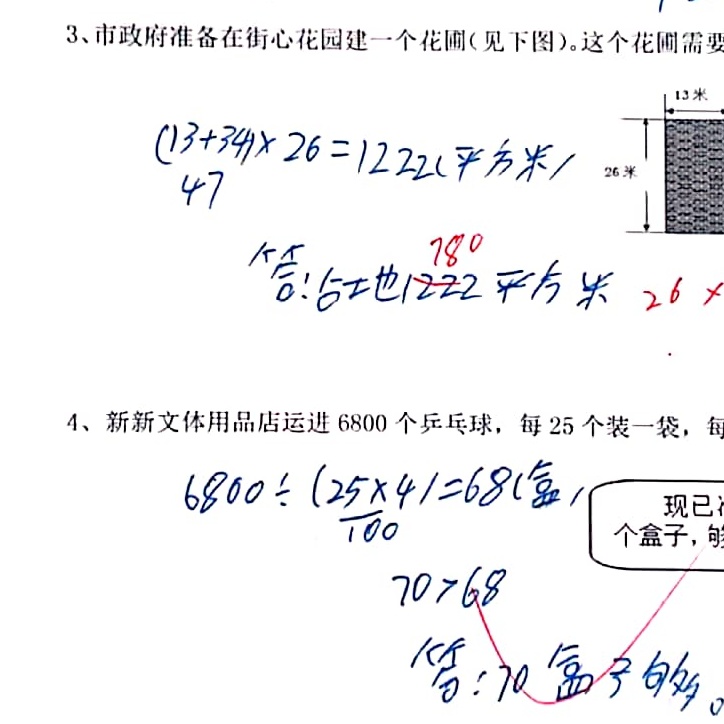 3、市政府准备在街心花园建一个花圃(见下图)。这个花圃需要
13米
(13+34)×26=1222(平方米)
47
26米
780
答:占地1222平方米
26×
4、新新文体用品店运进6800个乒乓球，每25个装一袋，每
6800÷(25×4)=68(盒)
100
现已
个盒子，够
70>68
答:70盒子够。